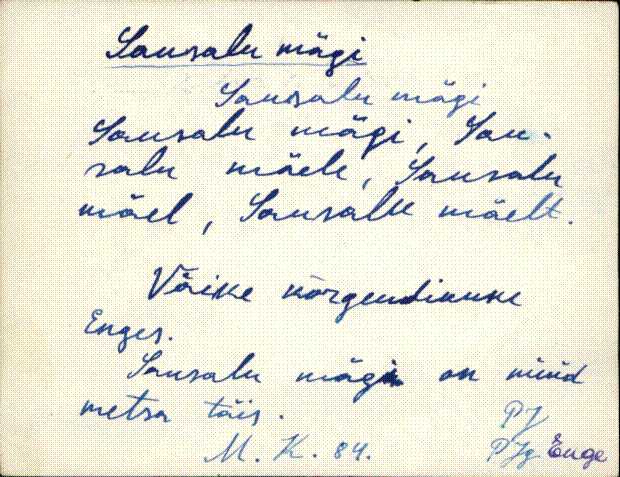 Sausalu mägi
Sausalu mägi
Sausalu mägi, Sau-
salu mäele, Sausalu
mäel, Sausalu mäelt.
Väike kõrgendikuke
Enges.
Sausalu mägi on nüüd
metsa täis.
PJ
M. K. 84.
PJg Enge